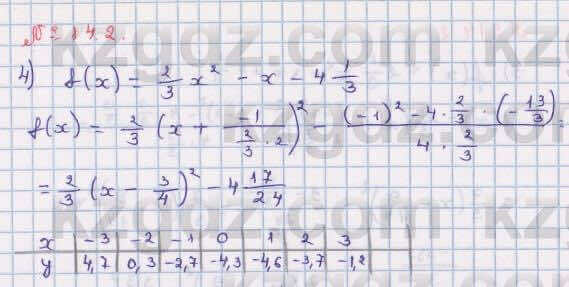 № 842.
4) f(x) = 2/3 x² - x - 4 1/3
f(x) = 2/3 (x + -1/(2/3 · 2))² - ((-1)² - 4 · 2/3 · (-13/3))/(4 · 2/3) =
= 2/3 (x - 3/4)² - 4 17/24
x | -3 | -2 | -1 | 0 | 1 | 2 | 3
y | 4,7 | 0,3 | -2,7 | -4,3 | -4,6 | -3,7 | -1,2
kzgdz.com